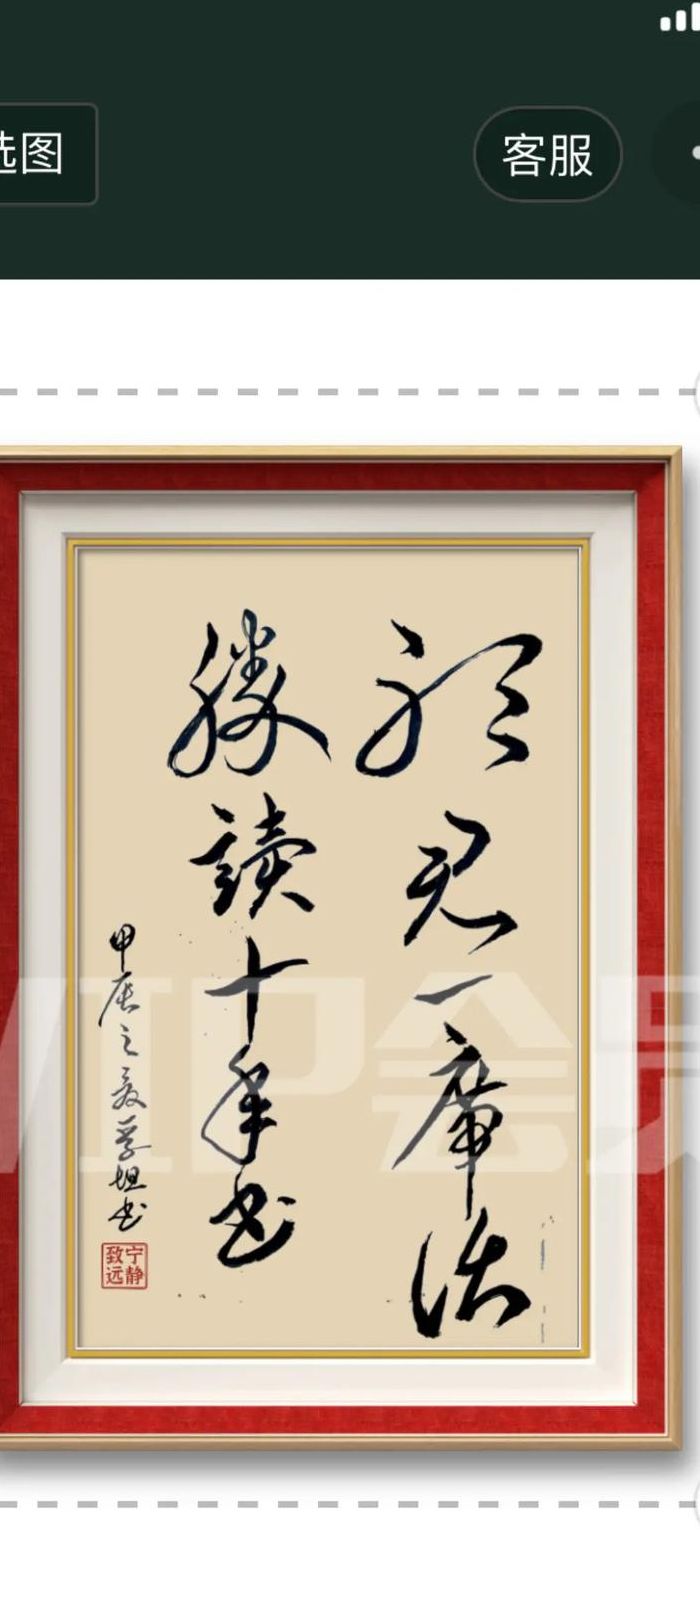 选图
客服
听君一席话
胜讀十年书
甲辰之夏学坦书
宁静
致远
VIP会员